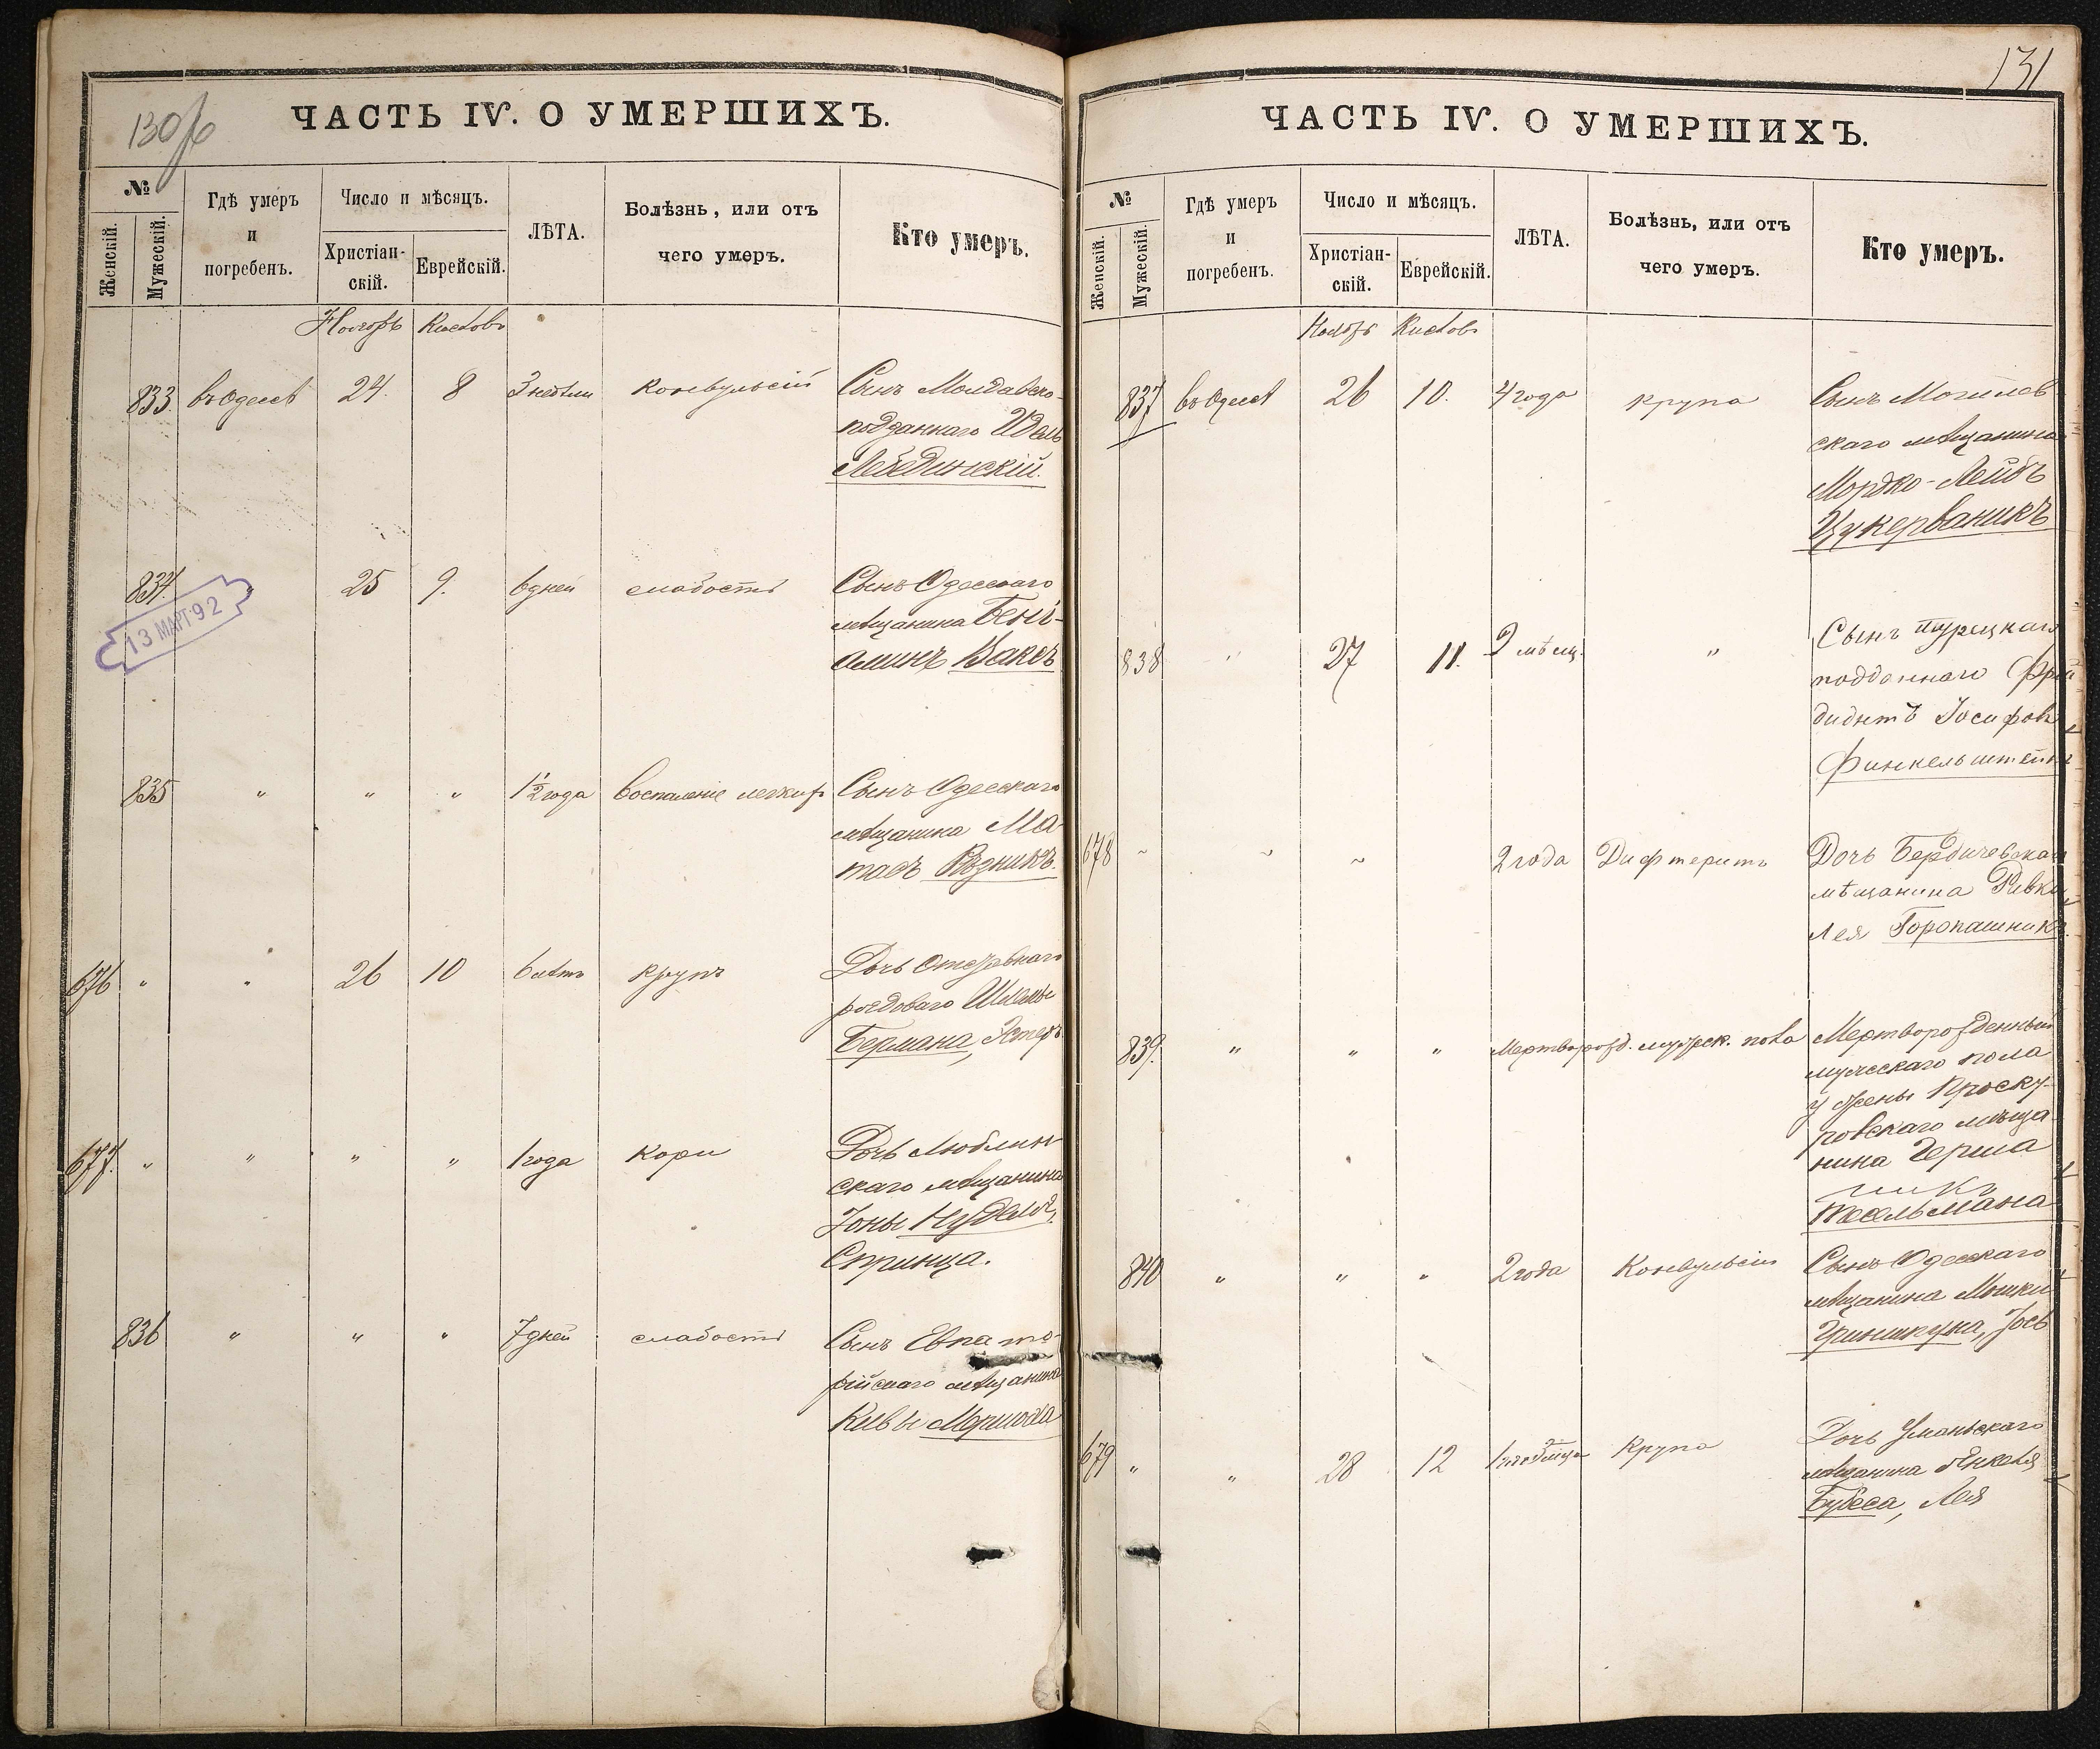 130об
ЧАСТЬ IV. О УМЕРШИХЪ.
№
Женскій.
Мужескій.
Гдѣ умеръ
и
погребенъ.
Число и мѣсяцъ.
Христіан-
скій.
Еврейскій.
ЛѢТА.
Болѣзнь, или отъ
чего умеръ.
Кто умеръ.
Ноябрь Кисловъ
833. въ Одессѣ 24. 8 3 недѣли конвульсій Сынъ Молдавско-
подданнаго Идель
Лебединскій.
834. 25 9. 6 дней слабости Сынъ Одесскаго
мѣщанина Бень-
аминъВаксъ
13 МАРТ 92
835 " " " 1½ года воспаленіе легких Сынъ Одесскаго
мѣщанина Ма-
тасъ Рѣзникъ.
676 " " 26 10 6 лѣтъ крупъ Дочь отставнаго
рядоваго Шлемы
Бермана, Эстеръ
677. " " " " 1 года кори Дочь Люблин-
скаго мѣщанина
Іоны Нудель,
Спринца.
836 " " " 7 дней слабости Сынъ Евпато-
рійскаго мѣщанина
Кивы
131
ЧАСТЬ IV. О УМЕРШИХЪ.
№
Женскій.
Мужескій.
Гдѣ умеръ
и
погребенъ.
Число и мѣсяцъ.
Христіан-
скій.
Еврейскій.
ЛѢТА.
Болѣзнь, или отъ
чего умеръ.
Кто умеръ.
Ноябрь Кислов
837 въ Одессѣ 26 10. 4 года крупа Сынъ Могилев
скаго мѣщанина
Мордко-Лейбъ
Цукерваникъ
838 " 27 11. 2 мѣсяц. " Сынъ турецкаго
подданнаго
Іосифов
Финкельштейнъ
678 " " " 2 года Дифтеритъ Дочь Бердичевскаго
мѣщанина Ривка
Лея Горопашникъ
839. " " " Мертворожд. мужеск. пола Мертворожденный
мужескаго пола
у жены Проску-
ровскаго мѣща
нина Герша
Кесельмана
840 " " " 2 года Конвульсіи Сынъ Одесскаго
мѣщанина Мошки
Гриншкуна, Іось
679 " " 28 12 Крупа Дочь Уманьскаго
мѣщанина Янкеля
Бубеса, Лея